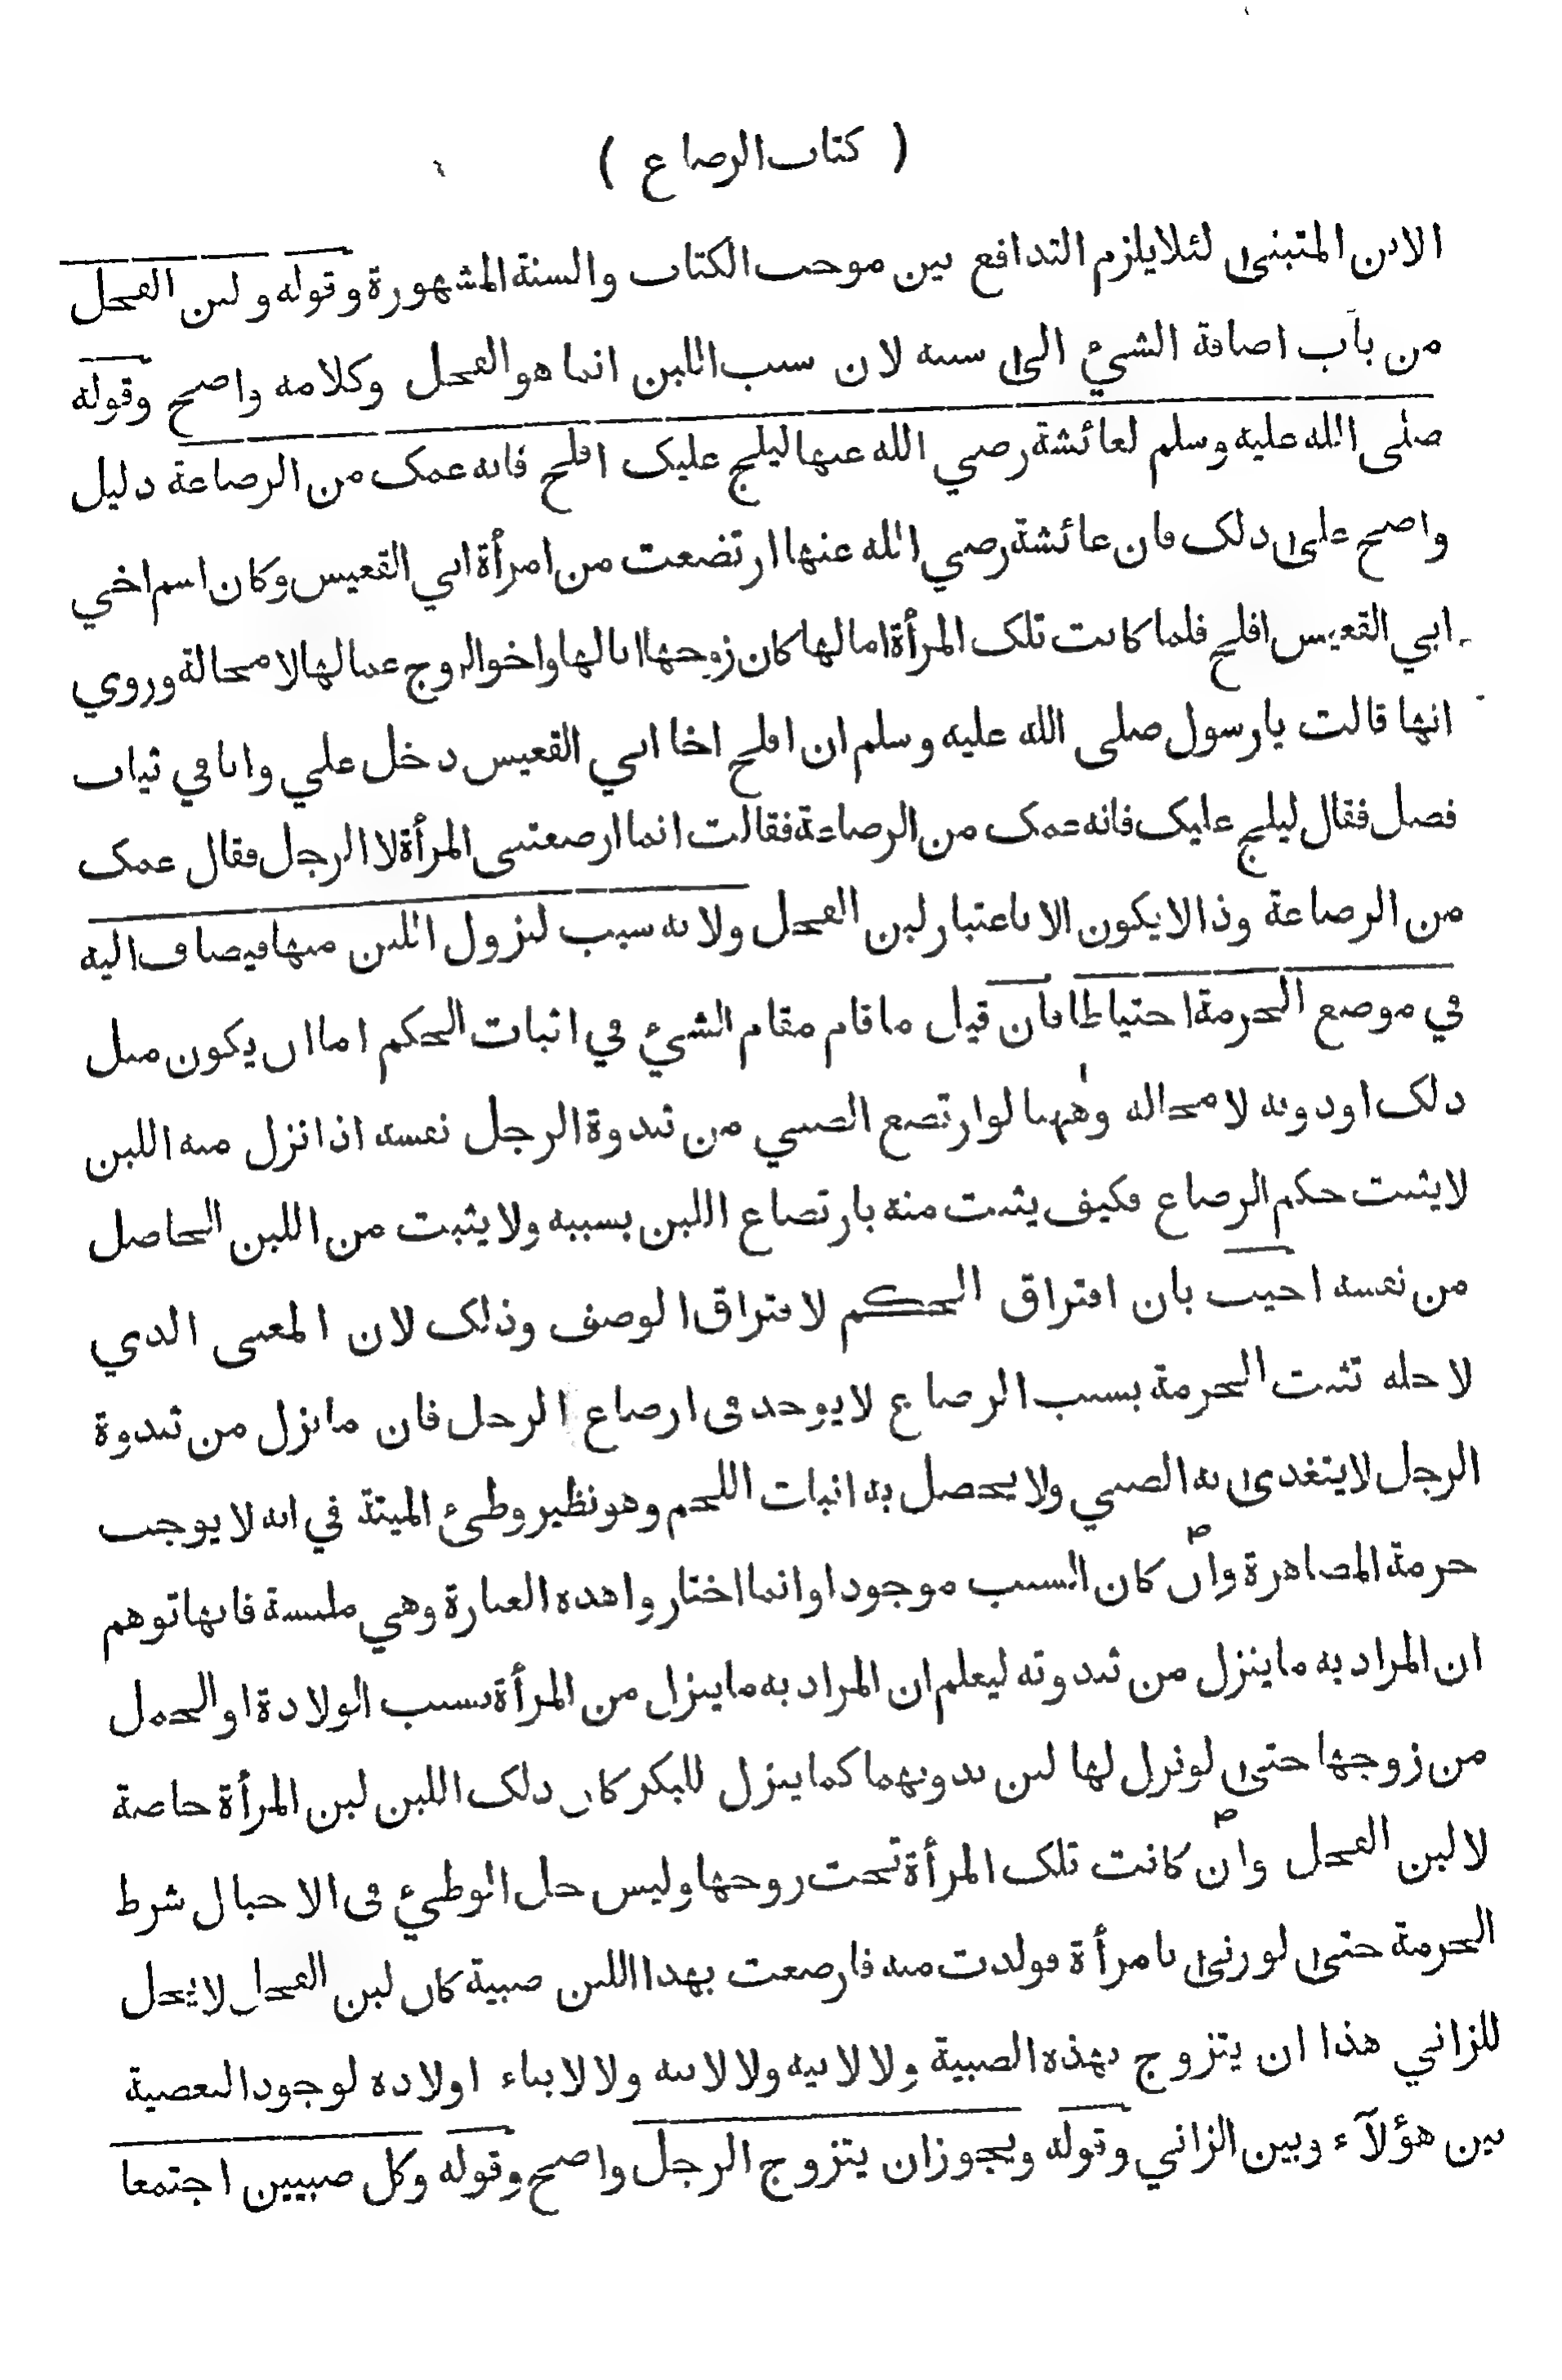 ( كتاب الرضاع )
الابن المتبنى لئلا يلزم التدافع بين موجب الكتاب والسنة المشهورة وقوله ولبن الفحل
من باب اضافة الشيء الى سببه لان سبب اللبن انما هو الفحل وكلامه واضح وقوله
صلى الله عليه وسلم لعائشة رضي الله عنها ليلج عليك افلح فانه عمك من الرضاعة دليل
واضح على ذلك فان عائشة رضي الله عنها ارتضعت من امرأة ابي القعيس وكان اسم اخي
ابي القعيس افلح فلما كانت تلك المرأة اما لها كان زوجها ابا لها واخو الزوج عما لها لا محالة وروي
انها قالت يا رسول صلى الله عليه وسلم ان افلح اخا ابي القعيس دخل علي وانا في ثياب
فضل فقال ليلج عليك فانه عمك من الرضاعة فقالت انما ارضعتنى المرأة لا الرجل فقال عمك
من الرضاعة وذا لا يكون الا باعتبار لبن الفحل ولانه سبب لنزول اللبن منها فيضاف اليه
في موضع الحرمة احتياطا فان قيل ما قام مقام الشيء في اثبات الحكم اما ان يكون مثل
ذلك او دونه لا محاله وههنا لو ارتضع الصبي من ثندوة الرجل نفسه اذا نزل منه اللبن
لا يثبت حكم الرضاع فكيف يثبت منه بارتضاع اللبن بسببه ولا يثبت من اللبن الحاصل
من نفسه اجيب بان افتراق الحكم لافتراق الوصف وذلك لان المعنى الذي
لاجله تثبت الحرمة بسبب الرضاع لا يوجد فى ارضاع الرجل فان ما نزل من ثندوة
الرجل لا يتغدى به الصبي ولا يحصل به انبات اللحم وهو نظير وطىء الميتة في انه لا يوجب
حرمة المصاهرة وان كان السبب موجودا وانما اختاروا هذه العبارة وهي ملبسة فانها توهم
ان المراد به ما ينزل من ثندوته ليعلم ان المراد به ما ينزل من المرأة بسبب الولادة او الحمل
من زوجها حتى لو نزل لها لبن بدونهما كما ينزل للبكر كان ذلك اللبن لبن المرأة خاصة
لا لبن الفحل وان كانت تلك المرأة تحت زوجها وليس حل الوطيء فى الاحبال شرط
الحرمة حتى لو زنى بامرأة فولدت منه فارضعت بهذا اللبن صبية كان لبن الفحل لا يحل
للزاني هذا ان يتزوج بهذه الصبية ولا لابيه ولا لابنه ولا لابناء اولاده لوجود البعضية
بين هؤلآء وبين الزاني وقوله ويجوز ان يتزوج الرجل واضح وقوله وكل صبيين اجتمعا